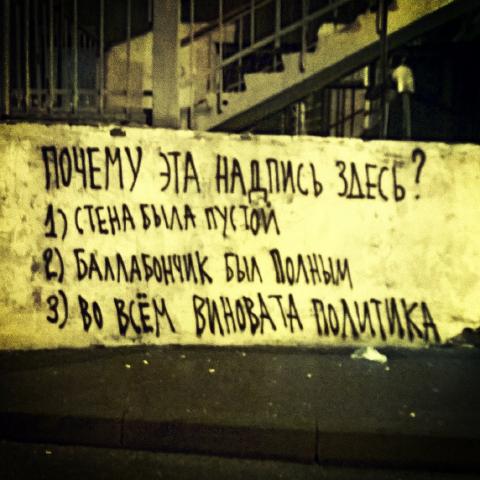 ПОЧЕМУ ЭТА НАДПИСЬ ЗДЕСЬ?
1) СТЕНА БЫЛА ПУСТОЙ
2) БАЛЛАБОНЧИК БЫЛ ПОЛНЫМ
3) ВО ВСЁМ ВИНОВАТА ПОЛИТИКА